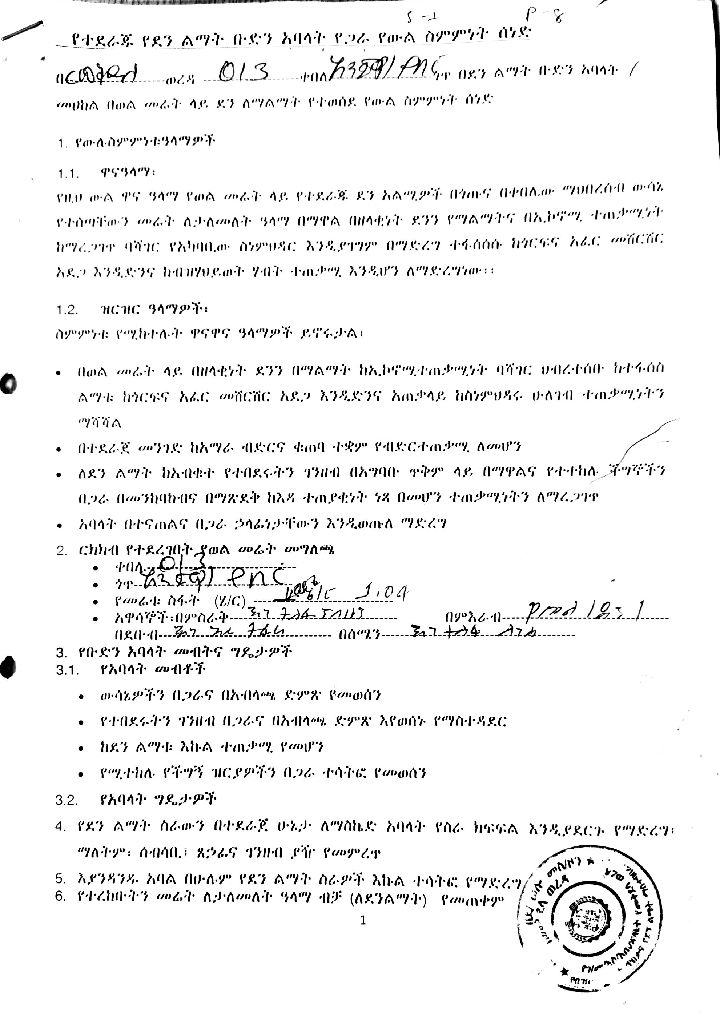 S-1 P-8
የተደራጁ የደን ልማት ቡድን አባላት የጋራ የውል ስምምነት ሰነድ
በ ወረዳ 013 ቀበሌ ጎጥ በደን ልማት ቡድን አባላት /
መሀከል በወል መሬት ላይ ደን ለማልማት የተወሰደ የውል ስምምነት ሰነድ
1. የውሉስምምነቱዓላማዎች
1.1. ዋናዓላማ፡
የዚህ ውል ዋና ዓላማ የወል መሬት ላይ የተደራጁ ደን አልሚዎች በጎጡና በቀበሌው ማህበረሰብ ውሳኔ
የተሰጣቸውን መሬት ለታለመለት ዓላማ በማዋል በዘላቂነት ደንን የማልማትና በኢኮኖሚ ተጠቃሚነት
ከማረጋገጥ ባሻገር የአካባቢው ስነምህዳር እንዲያገግም በማድረግ ተፋሰሱ ከጎርፍና አፈር መሸርሸር
አደጋ እንዲድንና ከብዝሃህይወት ሃብት ተጠቃሚ እንዲሆን ለማድረግነው፡፡
1.2. ዝርዝር ዓላማዎች፡
ስምምነቱ የሚከተሉት ዋናዋና ዓላማዎች ይኖሩታል፡
• በወል መሬት ላይ በዘላቂነት ደንን በማልማት ከኢኮኖሚተጠቃሚነት ባሻገር ህብረተሰቡ ከተፋሰስ
ልማቱ ከጎርፍና አፈር መሸርሸር አደጋ እንዲድንና አጠቃላይ ከስነምህዳሩ ሁለገብ ተጠቃሚነትን
ማሻሻል
• በተደራጀ መንገድ ከአማራ ብድርና ቁጠባ ተቋም የብድርተጠቃሚ ለመሆን
• ለደን ልማት ከአብቁተ የተበደሩትን ገንዘብ በአግባቡ ጥቅም ላይ በማዋልና የተተከሉ ችግኞችን
በጋራ በመንከባከብና በማጽደቅ ከእዳ ተጠያቂነት ነጻ በመሆን ተጠቃሚነትን ለማረጋገጥ
• አባላት በተናጠልና በጋራ ኃላፊነታቸውን እንዲወጡለ ማድረግ
2. ርክክብ የተደረገበት የወል መሬት መግለጫ
• ቀበሌ 013
• ጎጥ
• የመሬቱ ስፋት (ሄ/ር) 1.09
• አዋሳኞች፡በምስራቅ በምእራብ
በደቡብ በሰሜን
3. የቡድን አባላት መብትና ግዴታዎች
3.1. የአባላት መብቶች
• ውሳኔዎችን በጋራና በአብላጫ ድምጽ የመወሰን
• የተበደሩትን ገንዘብ በጋራና በአብላጫ ድምጽ እየወሰኑ የማስተዳደር
• ከደን ልማቱ እኩል ተጠቃሚ የመሆን
• የሚተከሉ የችግኝ ዝርያዎችን በጋራ ተሳትፎ የመወሰን
3.2. የአባላት ግዴታዎች
4. የደን ልማት ስራውን በተደራጀ ሁኔታ ለማስኬድ አባላት የስራ ክፍፍል እንዲያደርጉ የማድረግ፡
ማለትም፡ ሰብሳቢ፣ ጸኃፊና ገንዘብ ያዥ የመምረጥ
5. እያንዳንዱ አባል በሁሉም የደን ልማት ስራዎች እኩል ተሳትፎ የማድረግ
6. የተረከቡትን መሬት ለታለመለት ዓላማ ብቻ (ለደንልማት) የመጠቀም
1